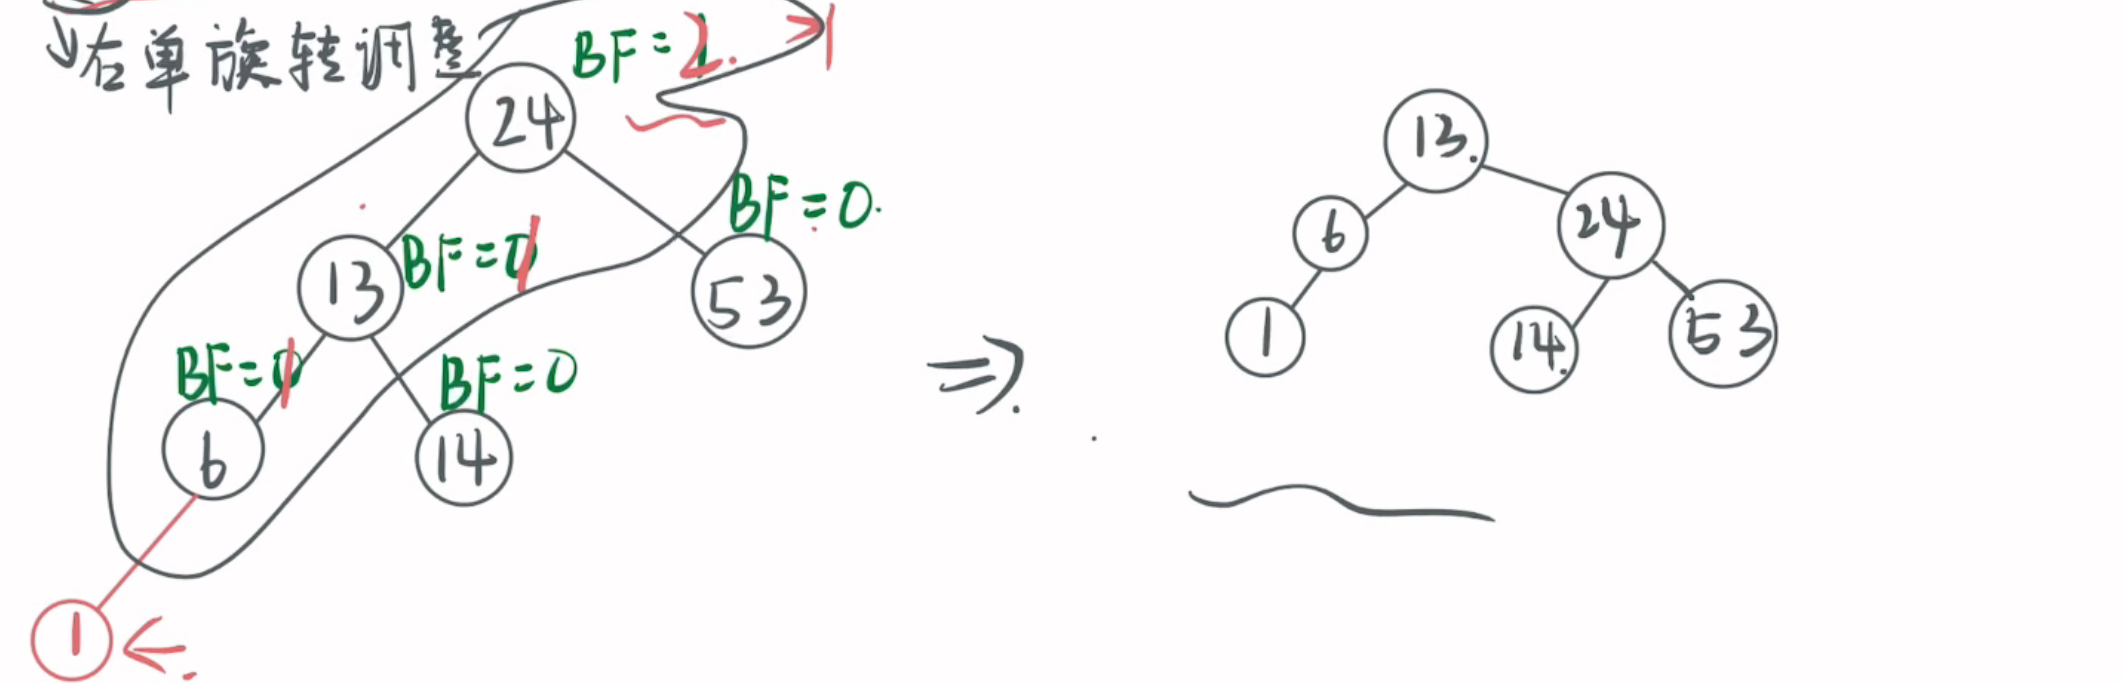 右单旋转调整
BF=2. >1
24
BF=0.
BF=1
13
53
BF=1
BF=0
6
14
1
⇒
13.
6
24
1
14.
53